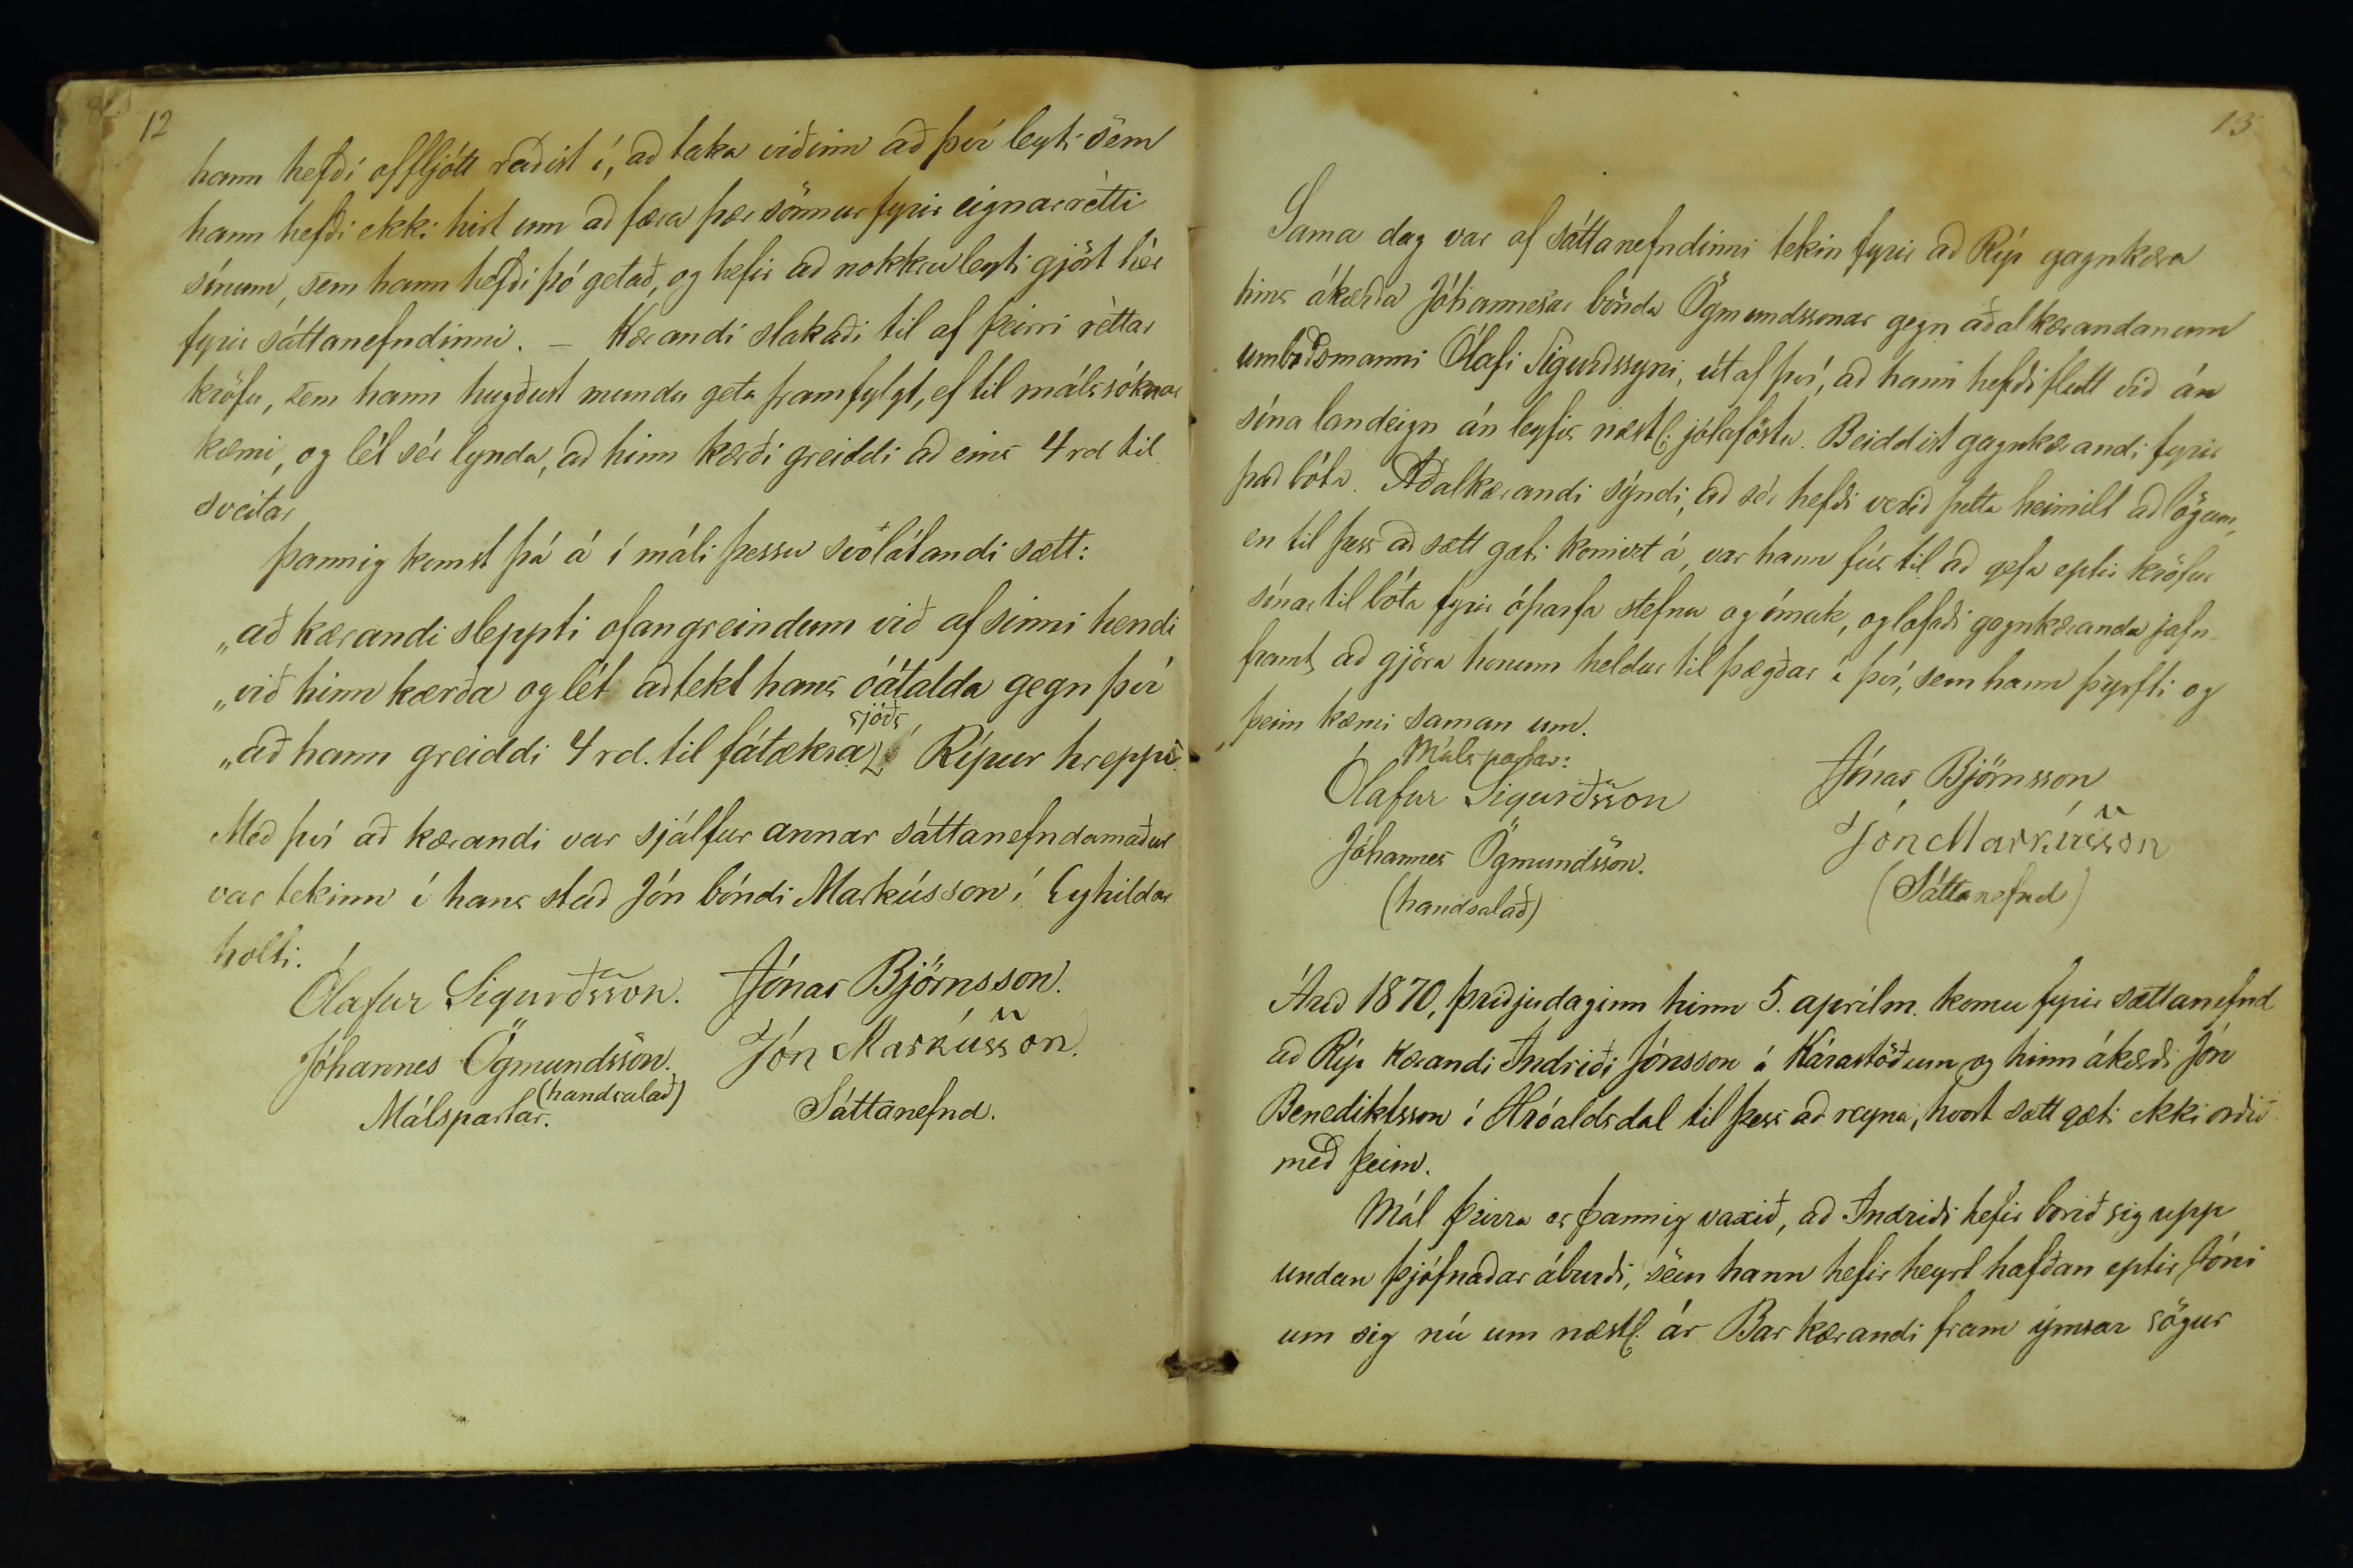 12
hann hefði offljótt ráðist í, að taka viðinn að því leyti sem
hann hefði ekki hirt um að færa þær sönnur fyrir eignarrétti
sínum, sem hann hefði þó getað, og hefir að nokkru leyti gjört hér
fyrir sáttanefndinni. – Kærandi slakaði til af þeirri réttar
kröfu, sem hann hugðist mundu geta framfylgt, ef til málssóknar
kæmi, og lét sér lynda, að hinn kærði greiddi að eins 4 rd til
sveitar
þannig komst þá á í máli þessu svolátandi sætt:
„að kærandi sleppti ofangreindum við af sinni hendi
„við hinn kærða og lét aðtekt hans óátalda gegn því
sjóðs
„að hann greiddi 4 rd. til fátækra í Rípur hrepps.
Með því að kærandi var sjálfur annar sáttanefndamaður
var tekinn í hans stað Jón bóndi Markússon í Eyhildar
holti.
Ólafur Sigurðsson. Jónas Björnsson.
Jóhannes Ögmundsson. Jón Markússon.
(handsalað)
Málspartar. Sáttanefnd.
13.
Sama dag var af sáttanefndinni tekin fyrir að Ríp gagnkæra
hins ákærða Jóhannesar bónda Ögmundssonar gegn aðalkærandanum
umboðsmanni Ólafi Sigurðssyni, út af því, að hann hefði flutt við án
sína landeign án leyfis næstl. jólaföstu. Beiddist gagnkærandi fyrir
það bóta. Aðalkærandi sýndi, að sér hefði verið þetta heimilt að lögum,
en til þess að sætt gæti komizt á, var hann fús til að gefa eptir kröfur
sínar til bóta fyrir óþarfa stefnu og ómak, og lofaði gagnkæranda jafn-
framt, að gjöra honum heldur til þægðar í því, sem hann þyrfti og
þeim kæmi saman um.
Málspartar:
Ólafur Sigurðsson Jónas Björnsson
Jóhannes Ögmundsson. Jón Markússon
(handsalað) (Sáttanefnd)
Árið 1870, þriðjudaginn hinn 5. aprílm. komu fyrir sáttanefnd
að Ríp kærandi Indriði Jónsson á Kárastöðum og hinn ákærði Jón
Benediktsson í Hróaldsdal til þess að reyna, hvort sætt gæti ekki orðið
með þeim.
Mál þeirra er þannig vaxið, að Indriði hefir borið sig upp
undan þjófnaðar áburði, sem hann hefir heyrt hafðan eptir Jóni
um sig nú um næstl. ár Bar kærandi fram ýmsar sögur